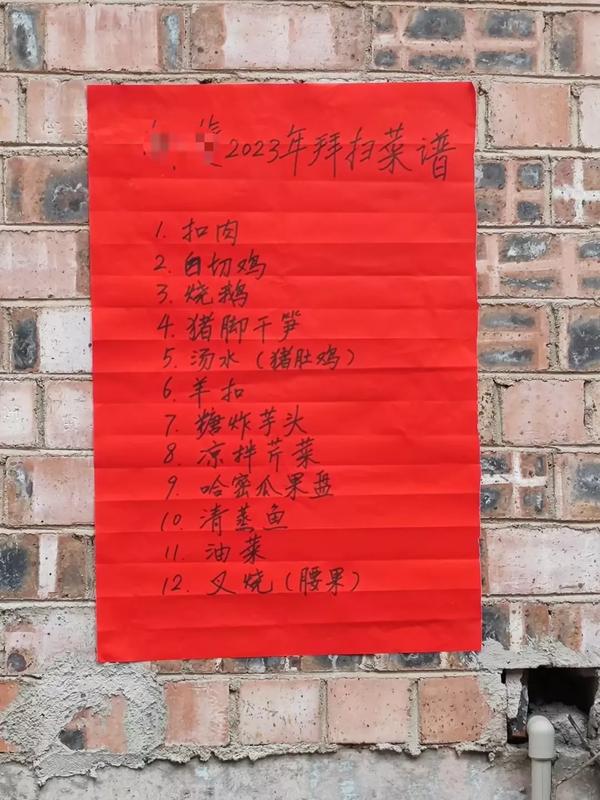 2023年拜扫菜谱
1. 扣肉
2. 白切鸡
3. 烧鹅
4. 猪脚干笋
5. 汤水（猪肚鸡）
6. 羊扣
7. 糖炸芋头
8. 凉拌芹菜
9. 哈密瓜果盘
10. 清蒸鱼
11. 油菜
12. 叉烧（腰果）